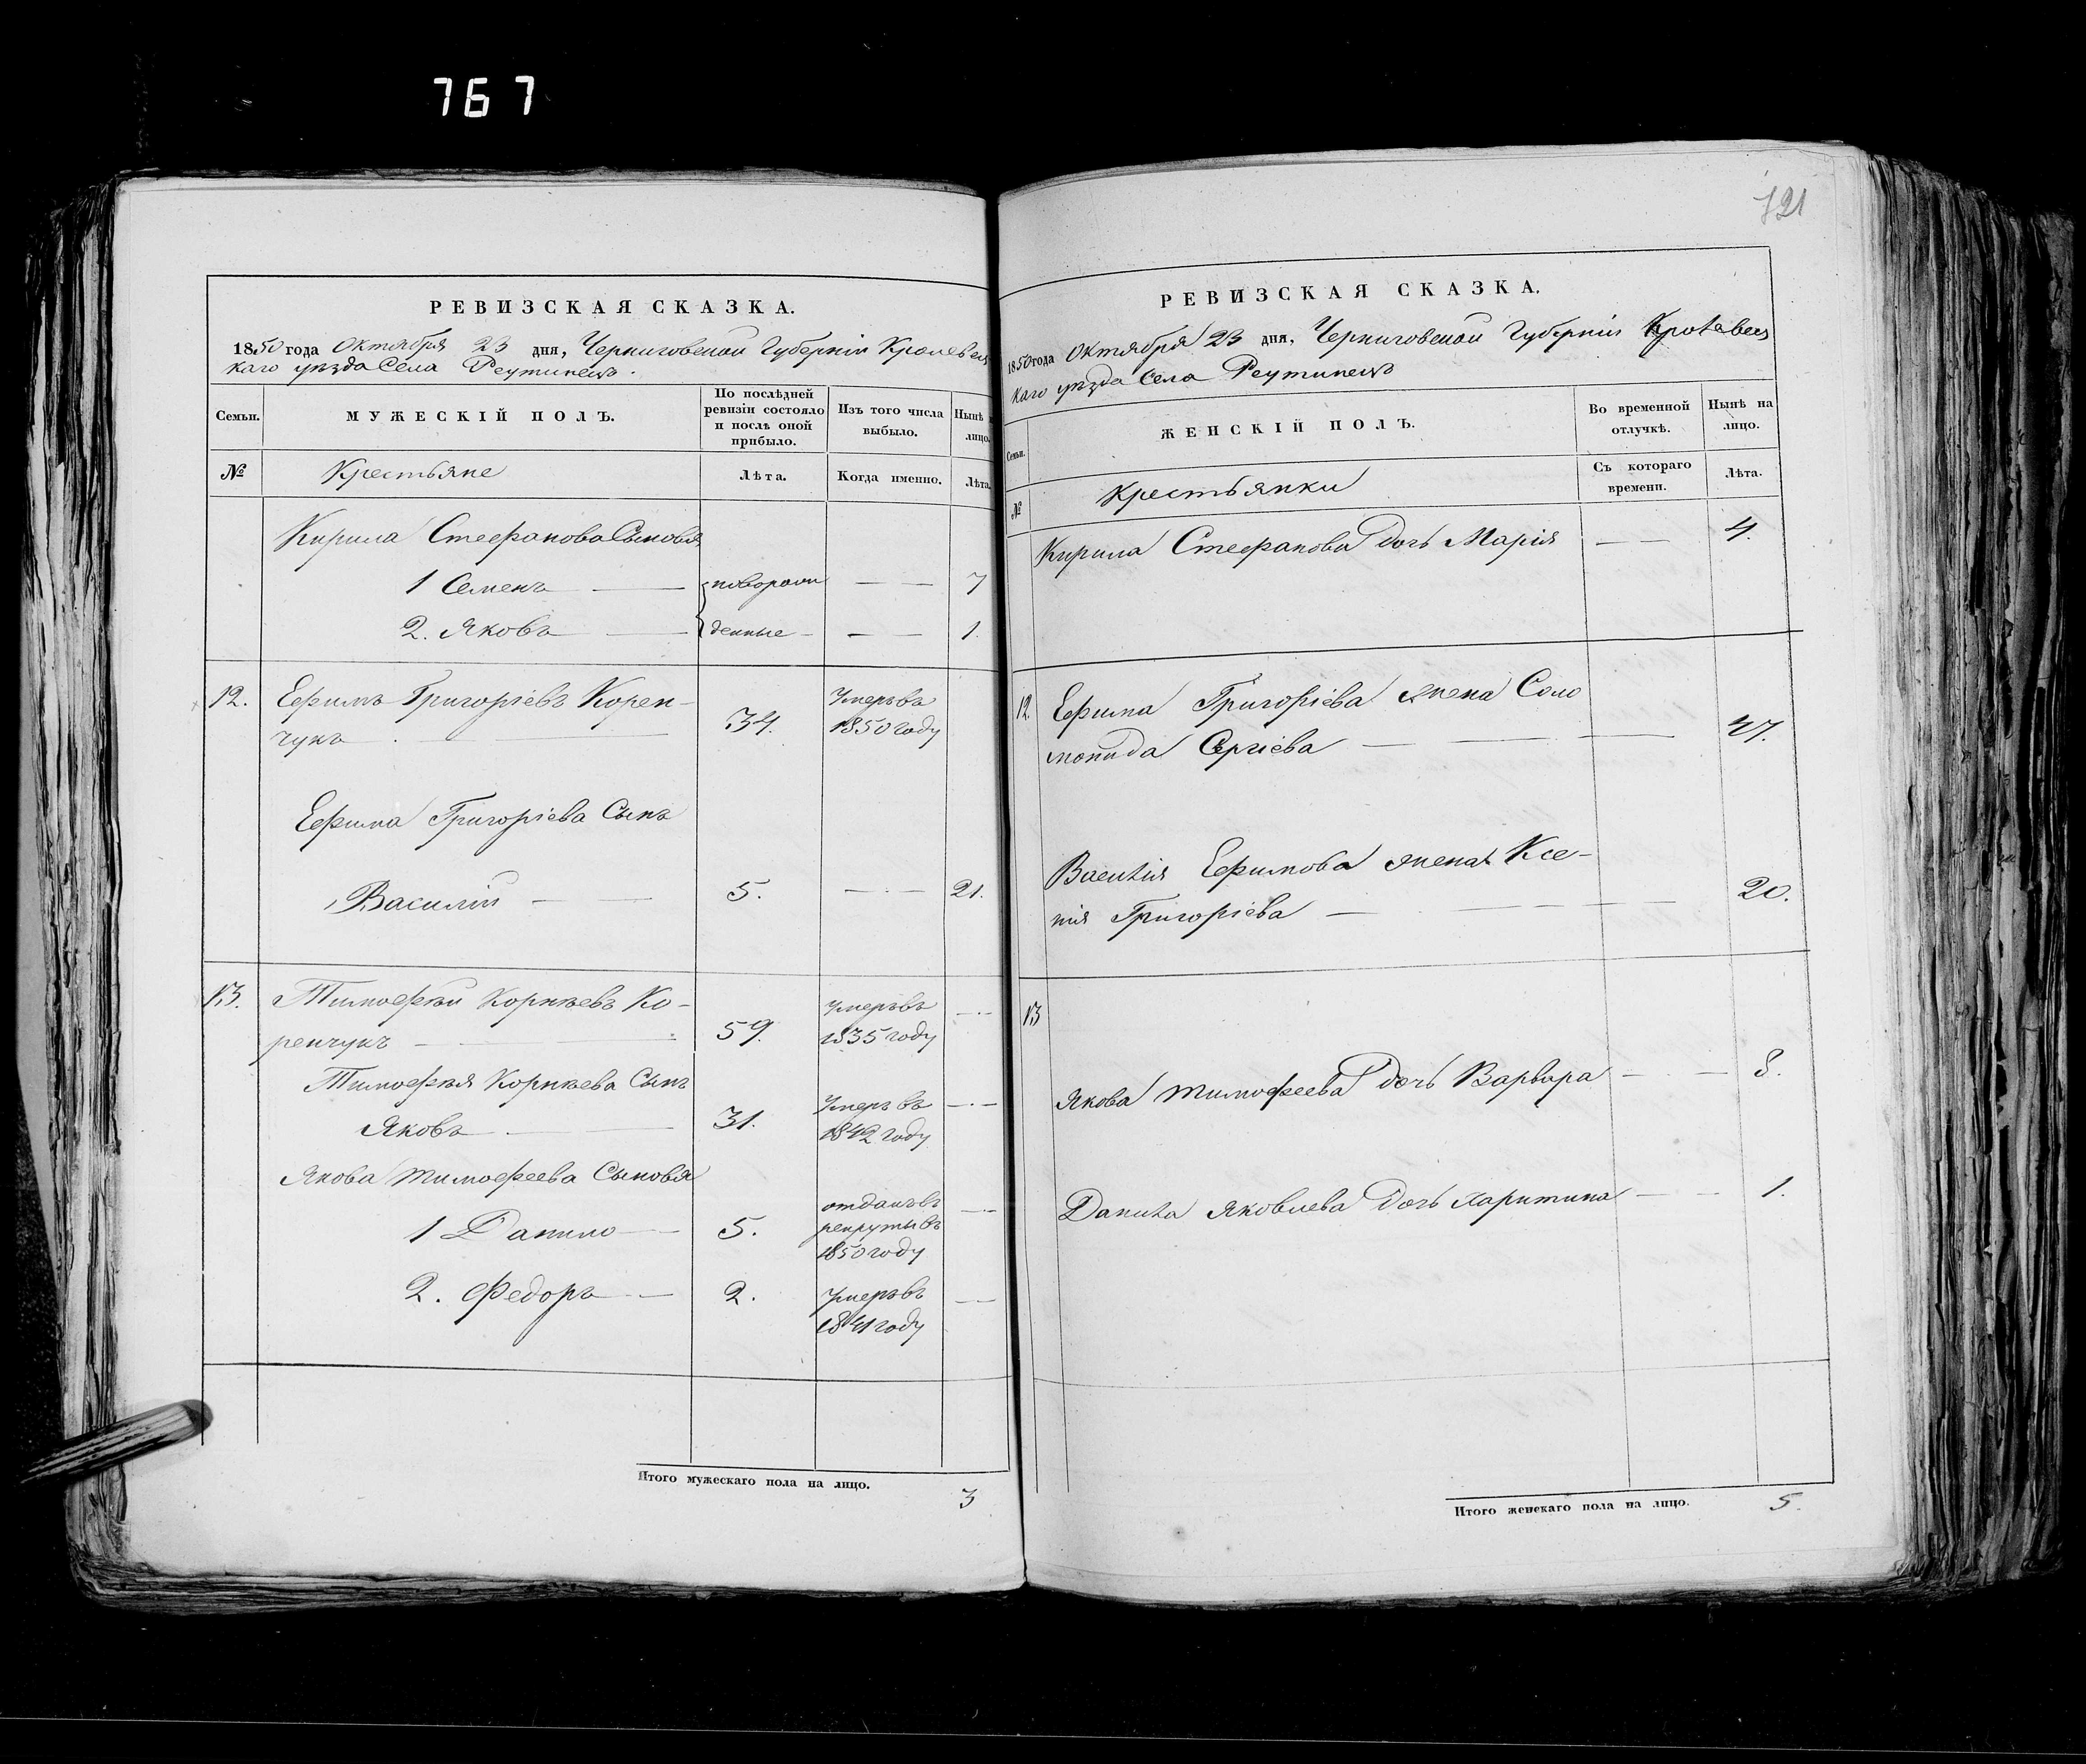 767
РЕВИЗСКАЯ СКАЗКА.
1850 года Октября 23 дня, Черниговской Губерніи Кролевец
каго уѣзда Села Реутинецъ.
Семьи. МУЖЕСКІЙ ПОЛЪ. По послѣдней ревизіи состояло и послѣ оной прибыло. Изъ того числа выбыло. Нынѣ н лицо.
№ Крестьяне Лѣта. Когда именно. Лѣта.
Кирила Стефанова Сыновья
1 Семенъ новорож — — 7
2. Яковъ денные — — 1.
12. Ефимъ Григоріевъ Корен-
чукъ 34. Умеръ въ 1850 году
Ефима Григоріева Сынъ
Василій 5. — — 21.
13. Тимофѣй Корнѣевъ Ко-
ренчукъ 59. Умеръ въ 1835 году — —
Тимофѣя Корнѣева Сынъ
Яковъ 31. Умеръ въ 1842 году — —
Якова Тимофеева Сыновья
1 Данило 5. отданъ въ рекруты въ 1850 году — —
2. Федоръ 2. Умеръ въ 1841 году — —
Итого мужескаго пола на лицо. 3
721
РЕВИЗСКАЯ СКАЗКА.
1850 года Октября 23 дня, Черниговской Губерніи Кролевец
каго уѣзда Села Реутинецъ
Семьи. ЖЕНСКІЙ ПОЛЪ. Во временной отлучкѣ. Нынѣ на лицо.
№ Крестьянки Съ котораго времени. Лѣта.
Кирила Стефанова дочь Марія — — 4.
12. Ефима Григоріева жена Соло
монида Сергіева — — 47.
Василія Ефимова жена Ксе-
нія Григоріева — — 20.
13
Якова Тимофеева дочь Варвара — — 8.
Данила Яковлева дочь Харитина — — 1.
Итого женскаго пола на лицо. 5.